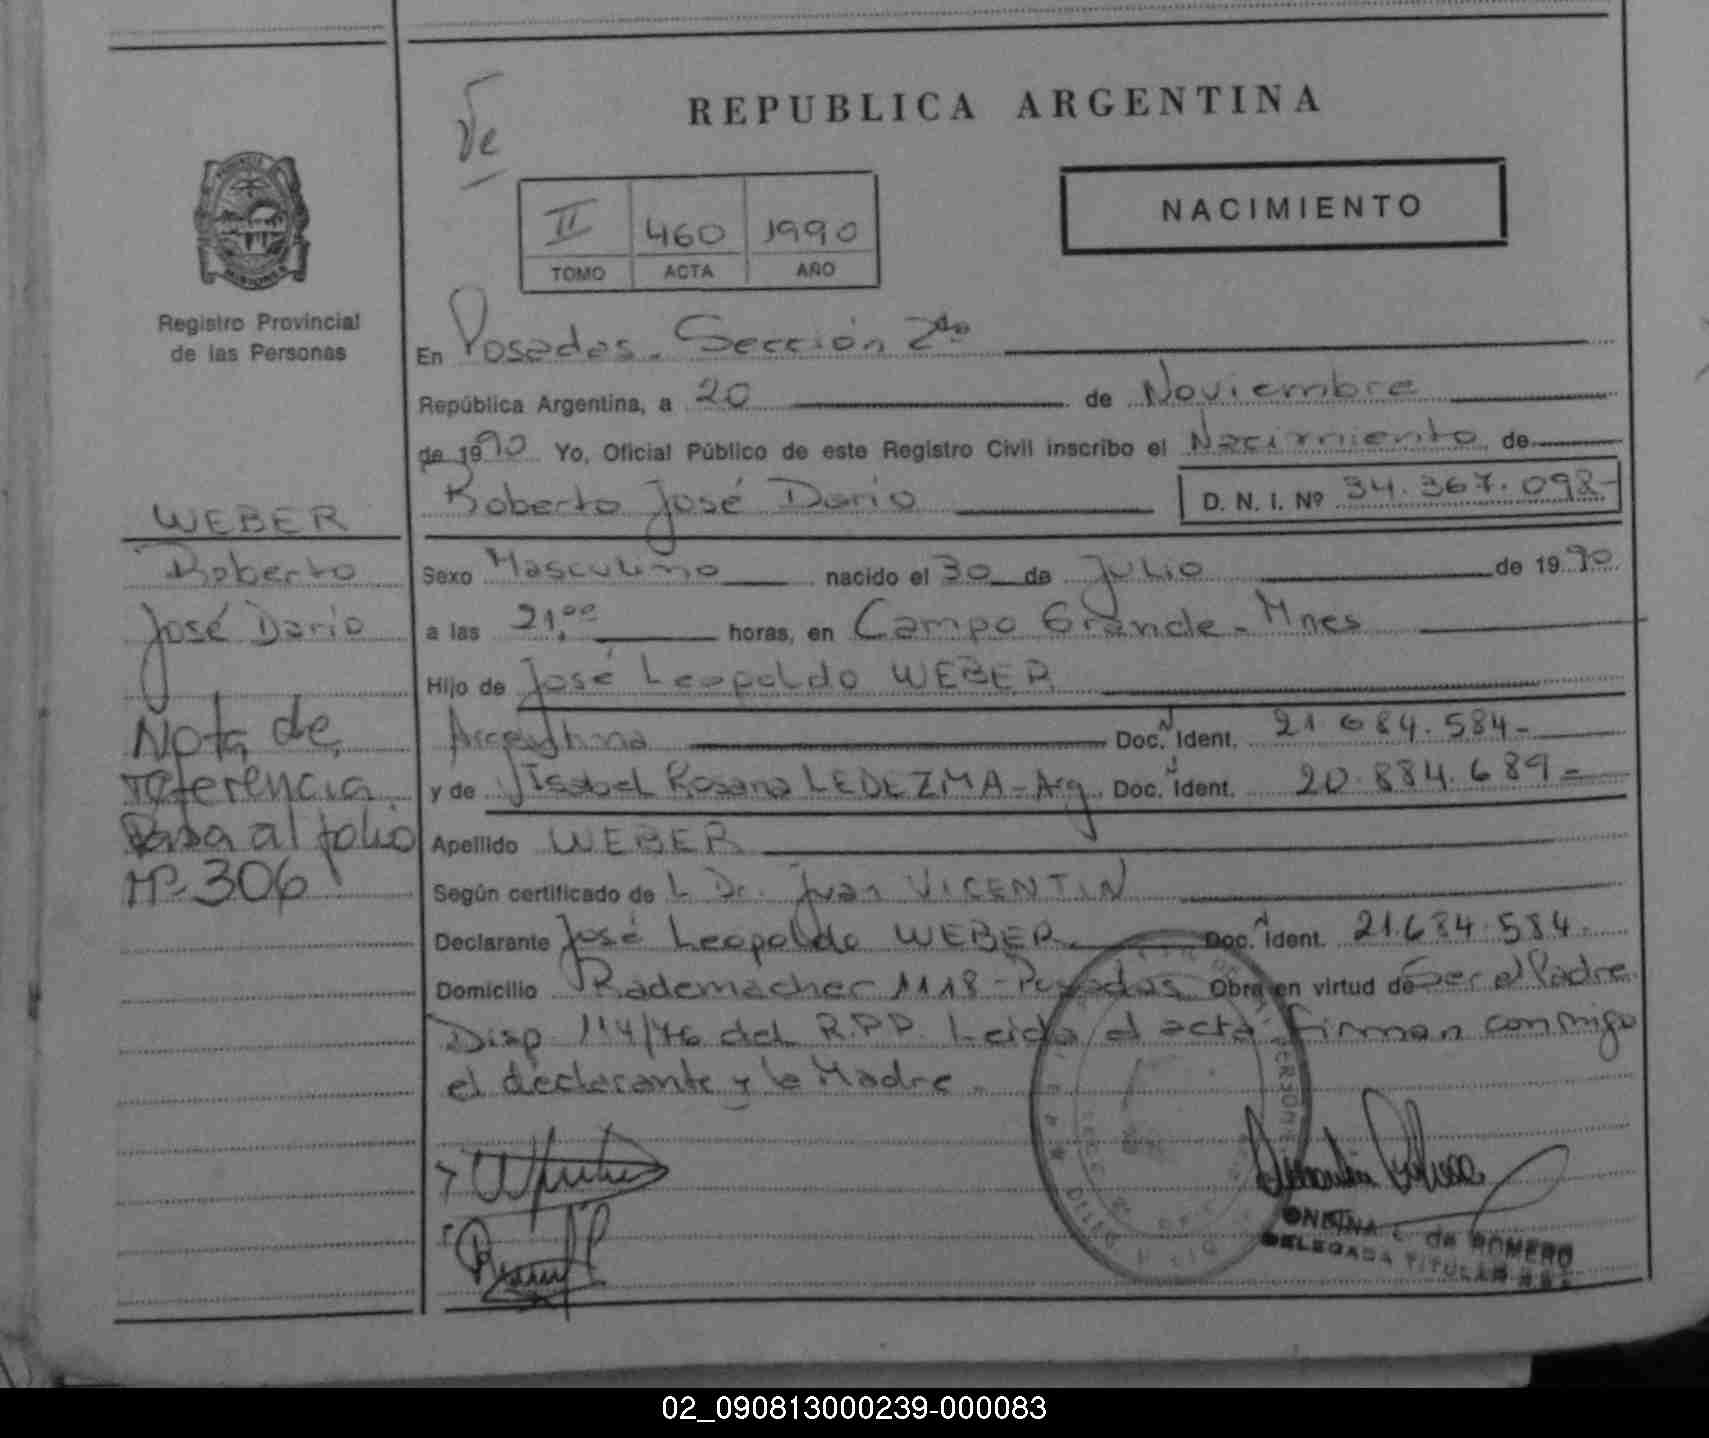 REPUBLICA ARGENTINA
Ve
II 460 1990
TOMO ACTA AÑO
NACIMIENTO
Registro Provincial
de las Personas
WEBER
Roberto
José Dario
Nota de
referencia
Pasa al folio
Nº 306
En Posadas. Sección 2da
República Argentina, a 20 de Noviembre
de 1990 Yo, Oficial Público de este Registro Civil inscribo el Nacimiento de
Roberto José Dario D. N. I. Nº 34.367.098-
Sexo Masculino nacido el 30 de Julio de 1990
a las 21:00 horas, en Campo Grande - Mnes
Hijo de José Leopoldo WEBER
Argentino Doc. Ident. 21.684.584-
y de Isabel Rosana LEDEZMA - Arg. Doc. Ident. 20.884.689-
Apellido WEBER
Según certificado de L Dr. Juan VICENTIN
Declarante José Leopoldo WEBER Doc. Ident. 21.684.584-
Domicilio Rademacher 1118 - Posadas Obra en virtud de Ser el Padre
Disp. 114/76 del R.P.P. Leida el acta firman conmigo
el declarante y la Madre.
ONDINA E. de ROMERO
DELEGADA TITULAR
02_090813000239-000083